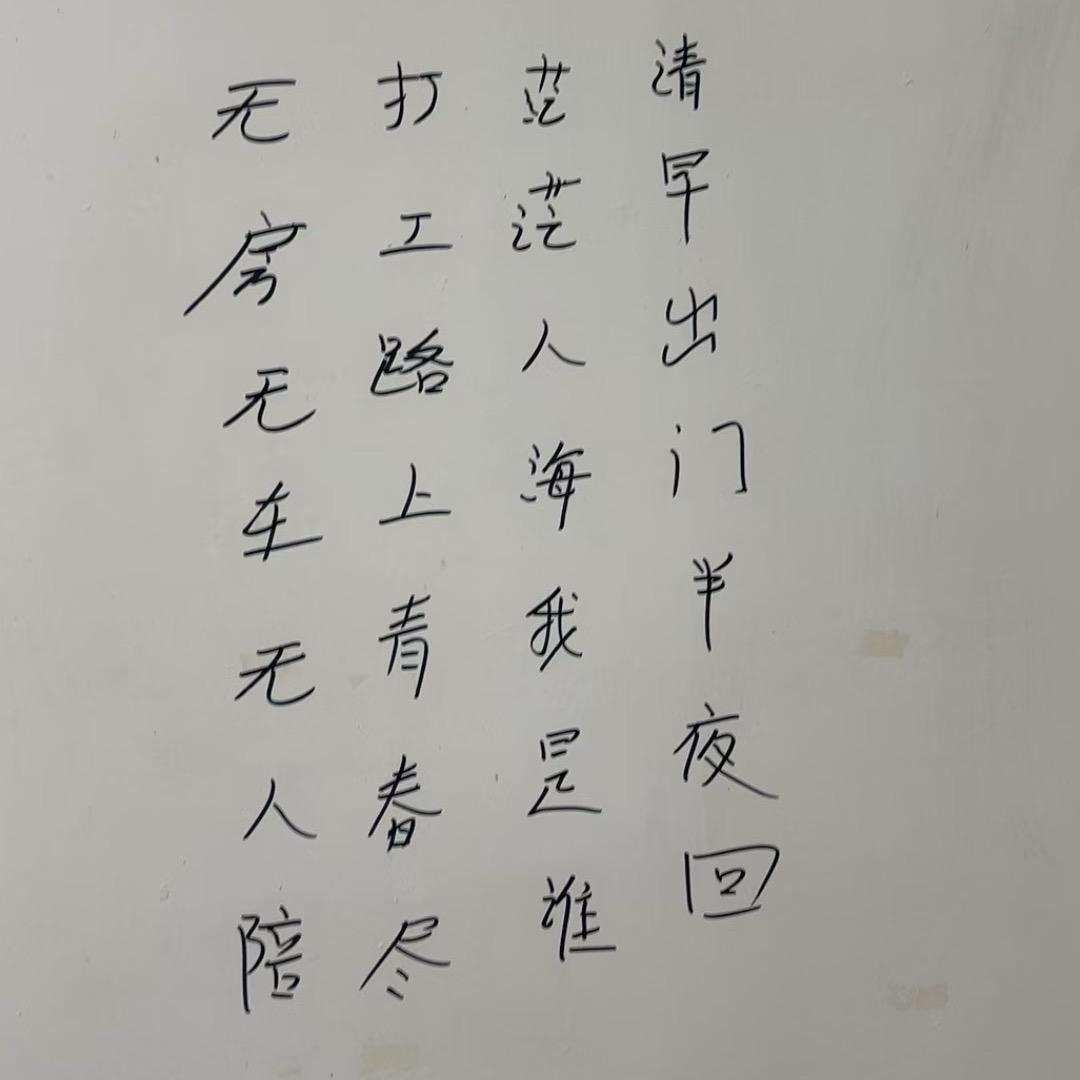 清早出门半夜回
茫茫人海我是谁
打工路上青春尽
无房无车无人陪